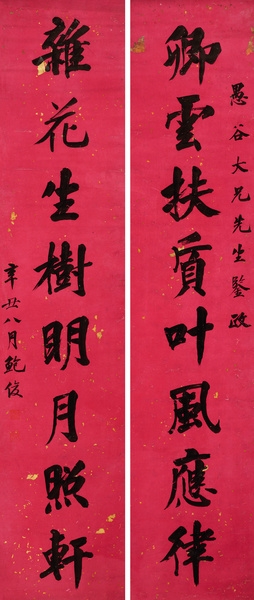 愚谷大兄先生鑒政
卿雲扶質叶風應律
雜花生樹明月照軒
辛丑八月鮑俊